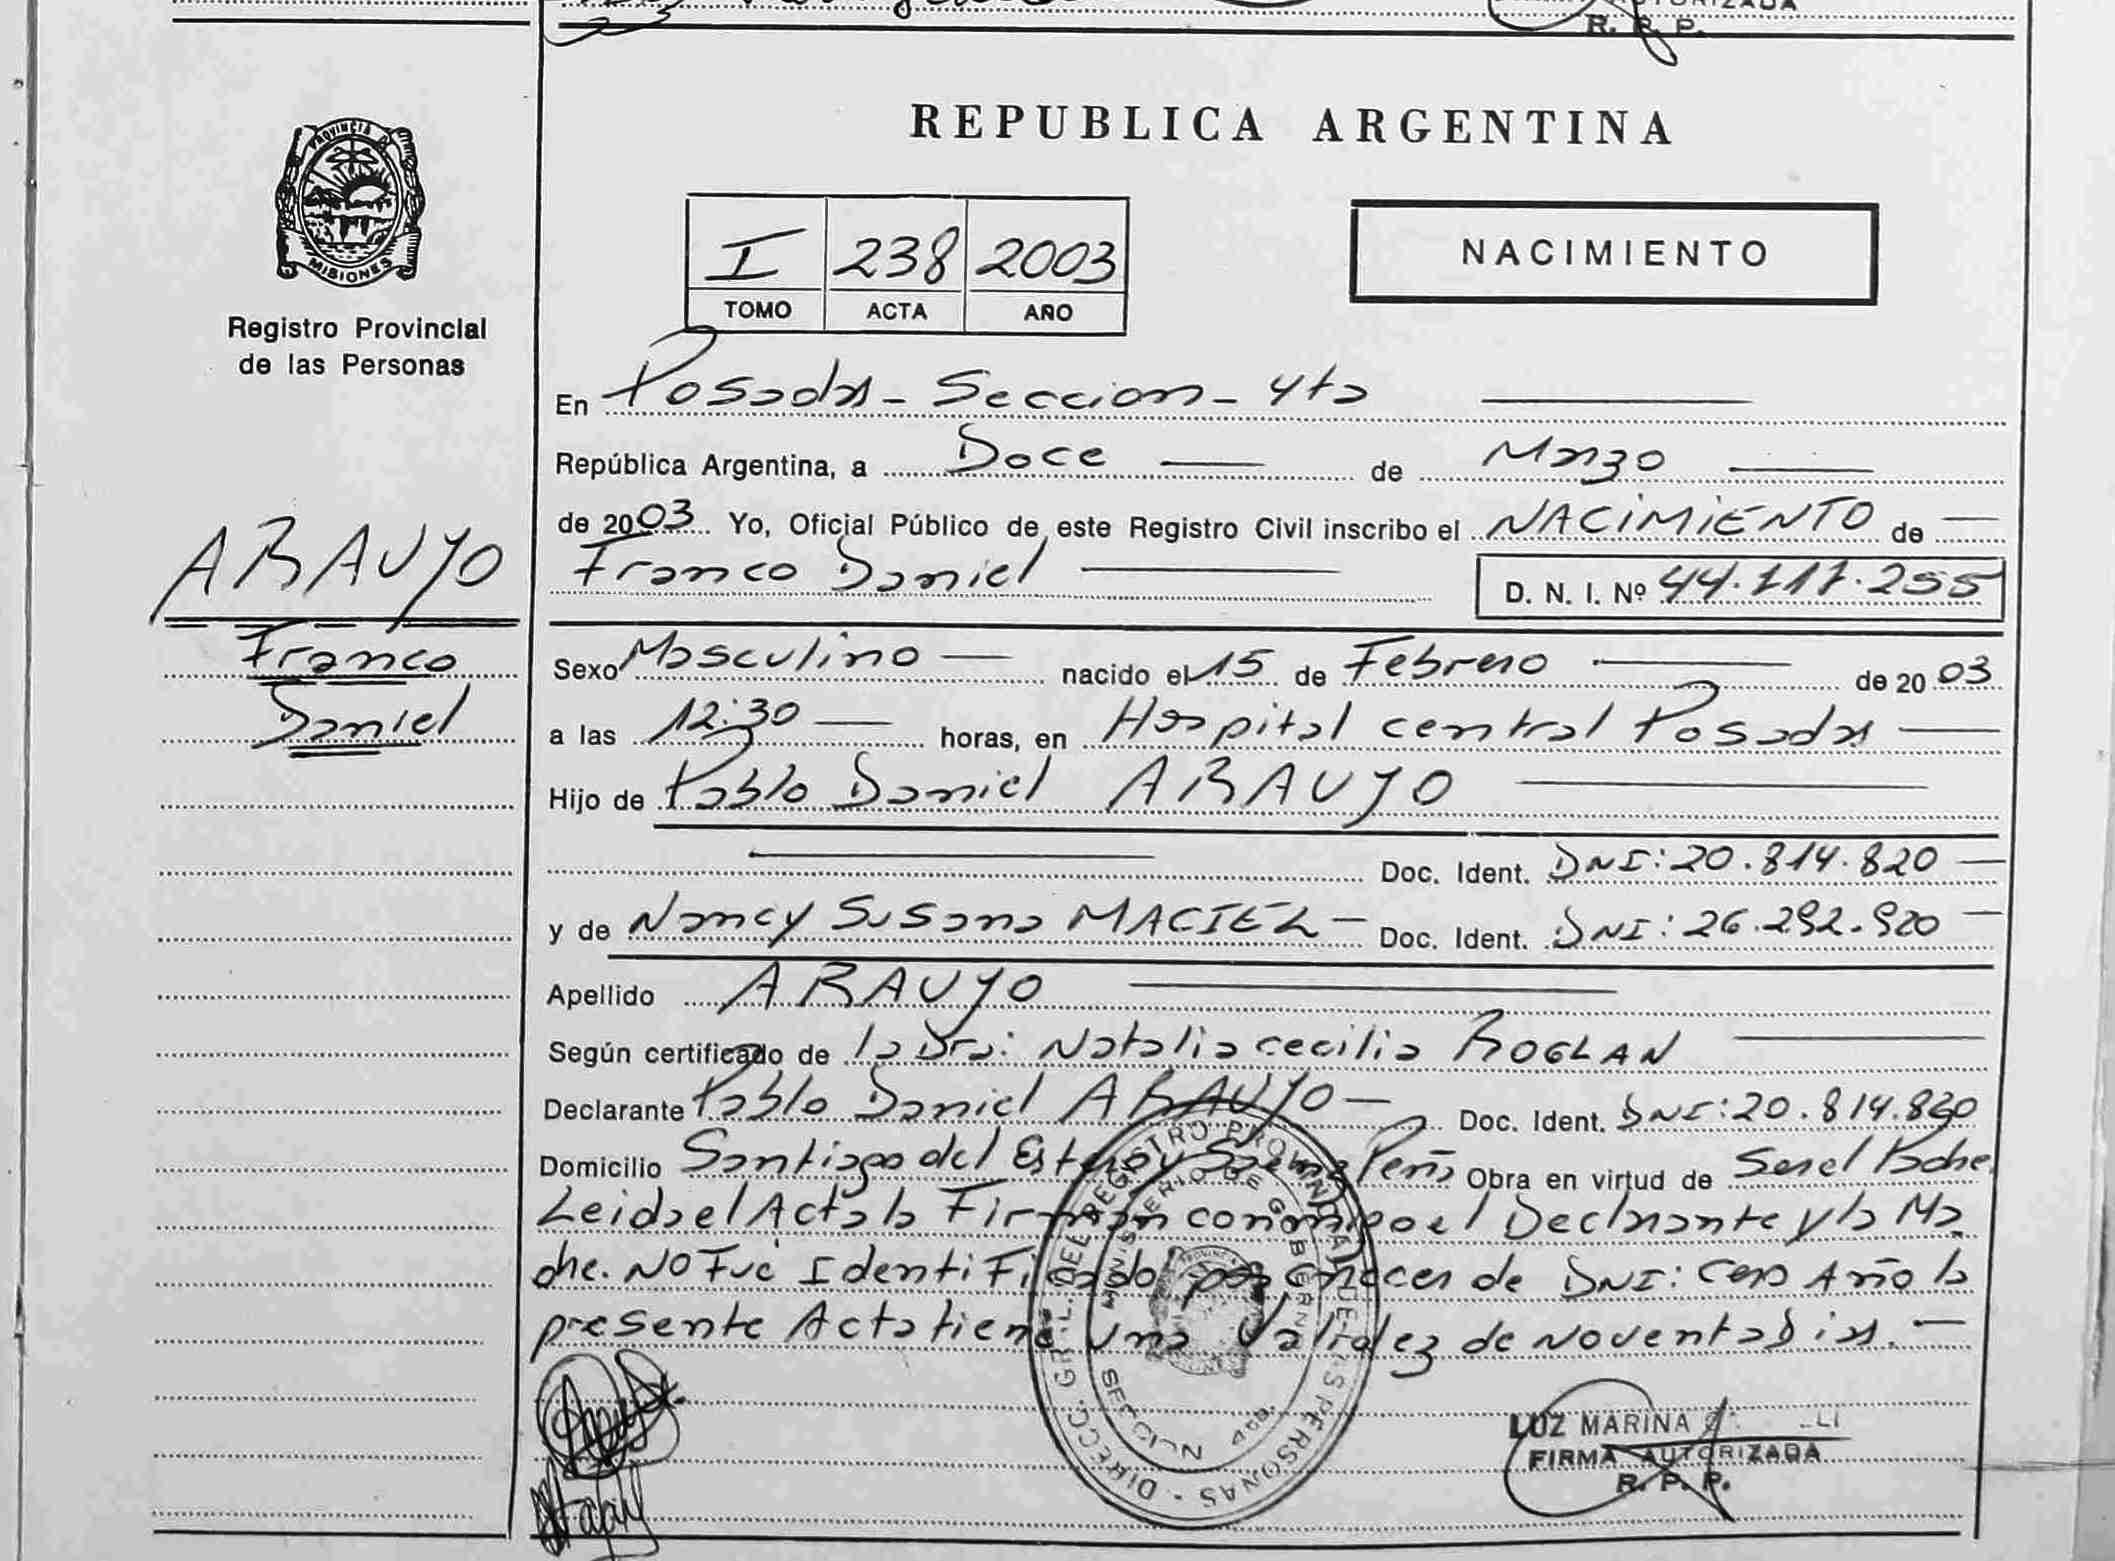 R. R. P.
PROVINCIA DE
MISIONES
Registro Provincial
de las Personas
ARAUJO
Franco
Daniel
REPUBLICA ARGENTINA
I 238 2003
TOMO ACTA AÑO
NACIMIENTO
En Posadas - Seccion - 4ta
República Argentina, a Doce de Marzo
de 2003 Yo, Oficial Público de este Registro Civil inscribo el NACIMIENTO de
Franco Daniel D. N. I. Nº 44.117.255
Sexo Masculino nacido el 15 de Febrero de 2003
a las 12:30 horas, en Hospital central Posadas
Hijo de Pablo Daniel ARAUJO
Doc. Ident. DNI: 20.814.820
y de Nancy Susana MACIEL Doc. Ident. DNI: 26.292.920
Apellido ARAUJO
Según certificado de la Dra: Natalia cecilia ROGLAN
Declarante Pablo Daniel ARAUJO Doc. Ident. DNI: 20.814.820
Domicilio Santiago del Estero y Saenz Peña Obra en virtud de Ser el Padre.
Leida el Acta la Firman conmigo el Declarante y la Ma
dre. NO Fué Identificado por carecer de DNI: Cero Año la
presente Acta tiene una Validez de Noventa Dias.
DIRECC. GRAL. DEL REGISTRO PROVINCIAL DE LAS PERSONAS
MINISTERIO DE GOBIERNO
SECCION
LUZ MARINA
FIRMA AUTORIZADA
R. P. P.